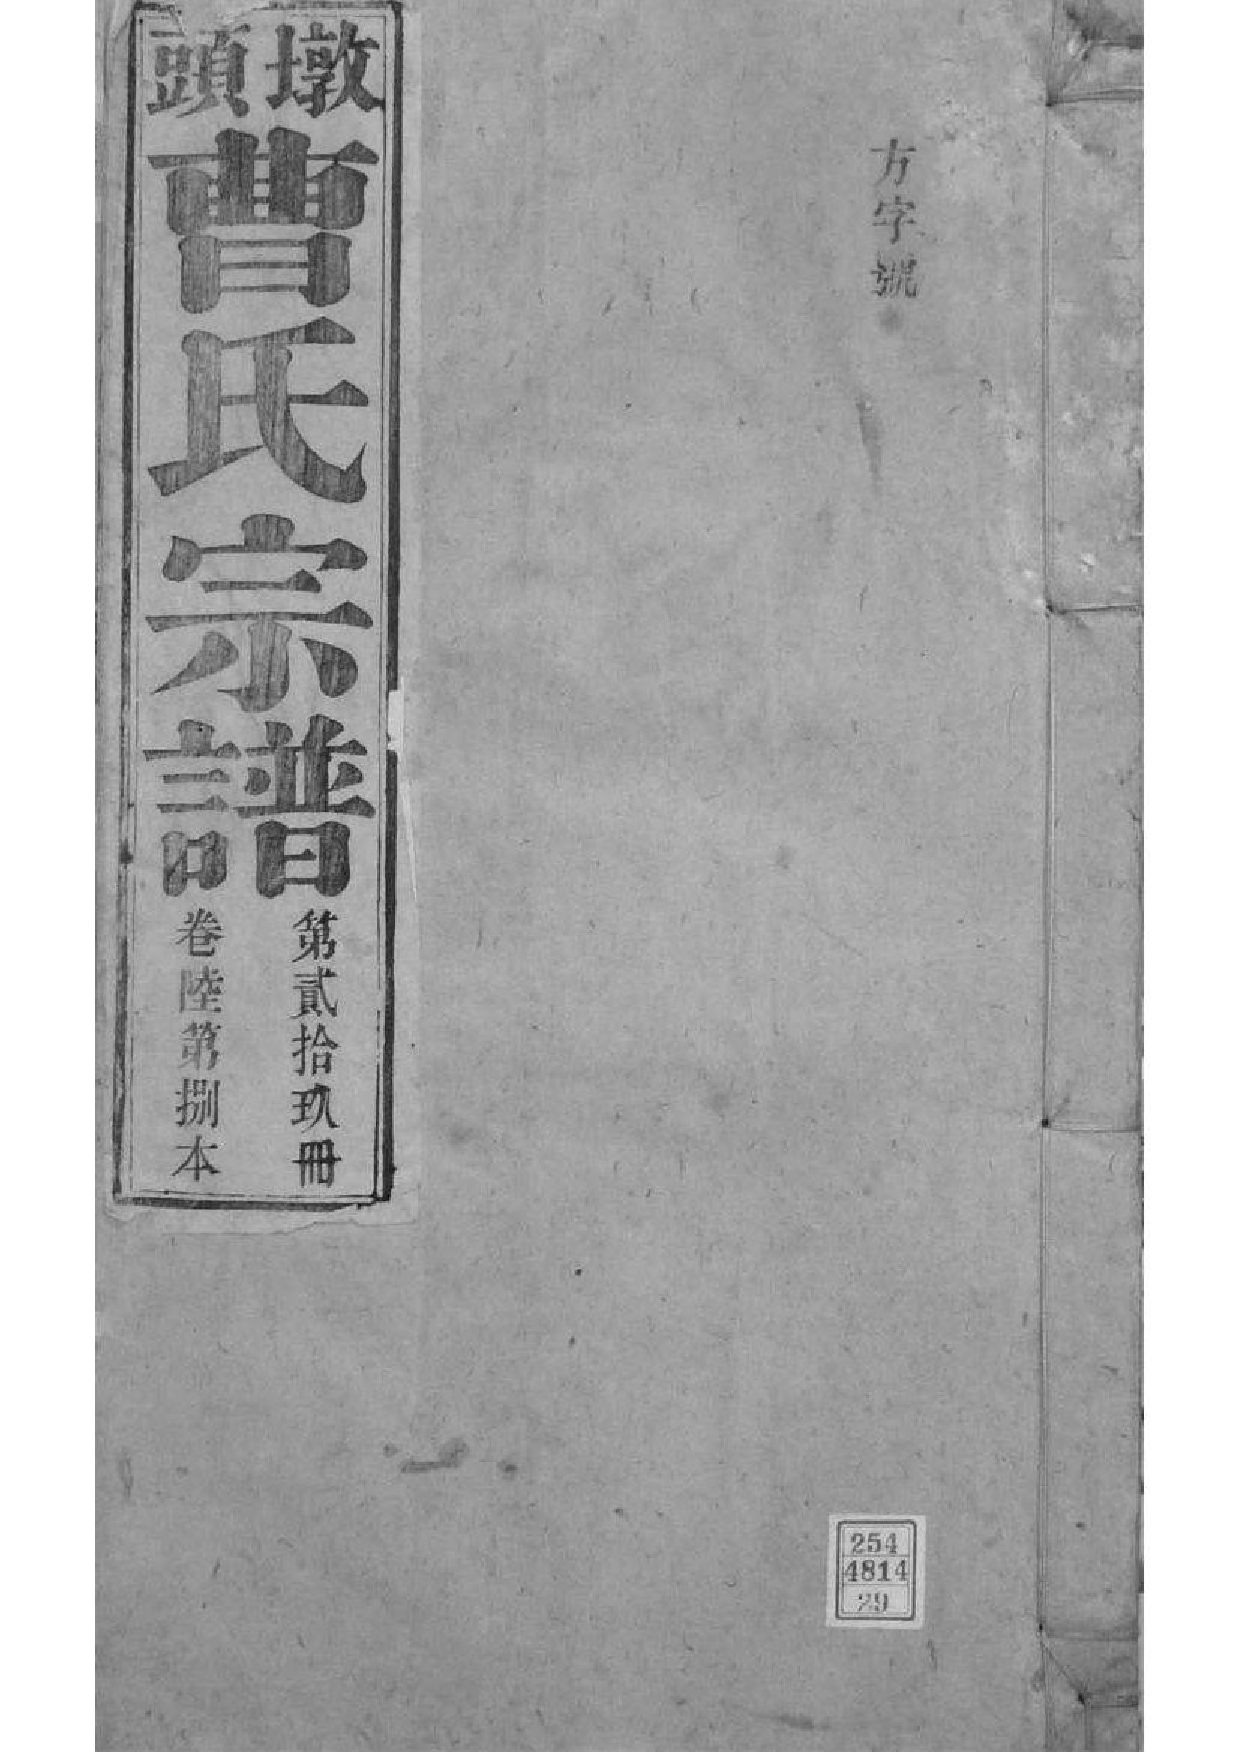 方字號
墩頭
曹氏宗譜
第貳拾玖冊
卷陸第捌本
254
4814
29